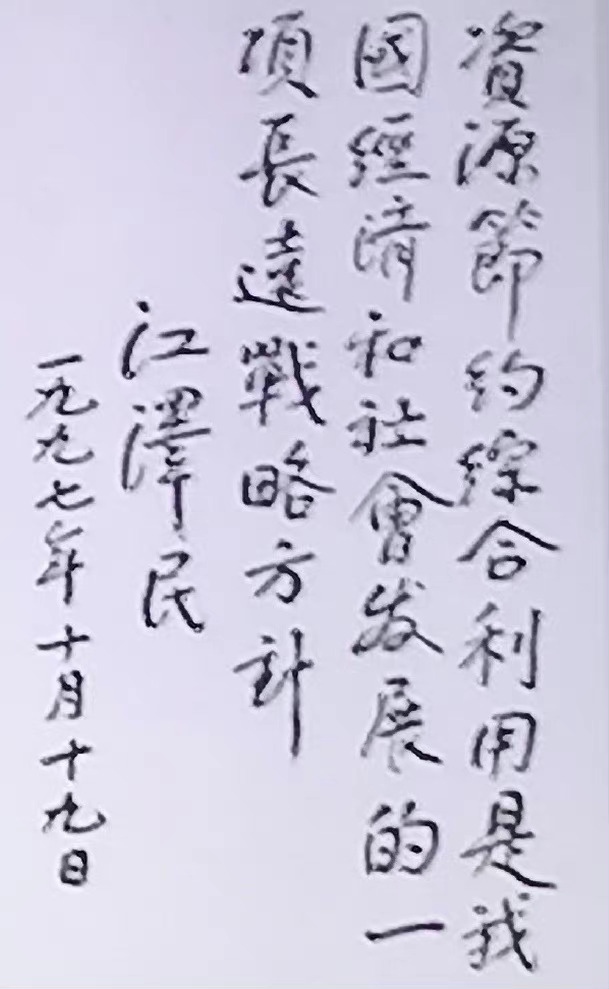 資源節約綜合利用是我
國經濟和社會发展的一
項長遠戰略方針
江澤民
一九九七年十月十九日